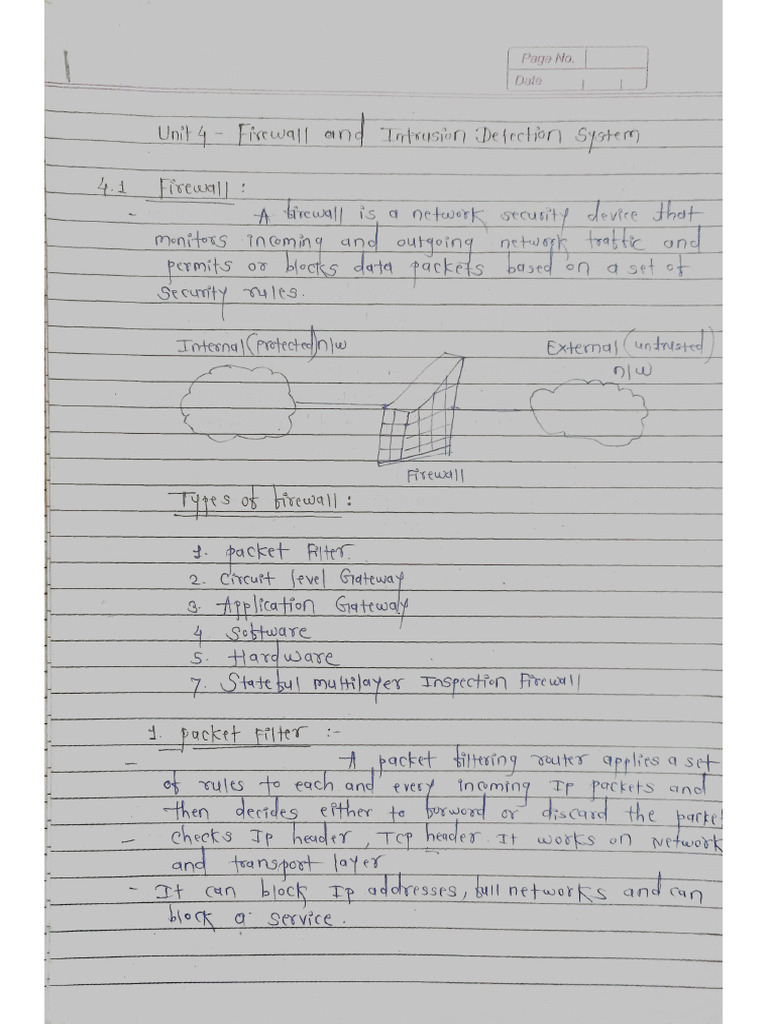 Page No.
Date
Unit 4 - Firewall and Intrusion Detection System
4.1 Firewall :
- A firewall is a network security device that
monitors incoming and outgoing network traffic and
permits or blocks data packets based on a set of
security rules.
Internal (protected) n/w External (untrusted)
n/w
Firewall
Types of firewall :
1. packet Filter.
2. Circuit level Gateway
3. Application Gateway
4 Software
5. Hardware
7. Stateful multilayer Inspection Firewall
1. packet Filter :-
- A packet filtering router applies a set
of rules to each and every incoming Ip packets and
then decides either to forword or discard the packe
- checks Ip header, TCP header. It works on Network
and transport layer
- It can block Ip addresses, full networks and can
block a service.